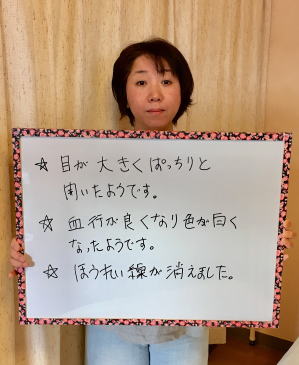 ☆ 目が大きくぱっちりと
開いたようです。
☆ 血行が良くなり色が白く
なったようです。
☆ ほうれい線が消えました。